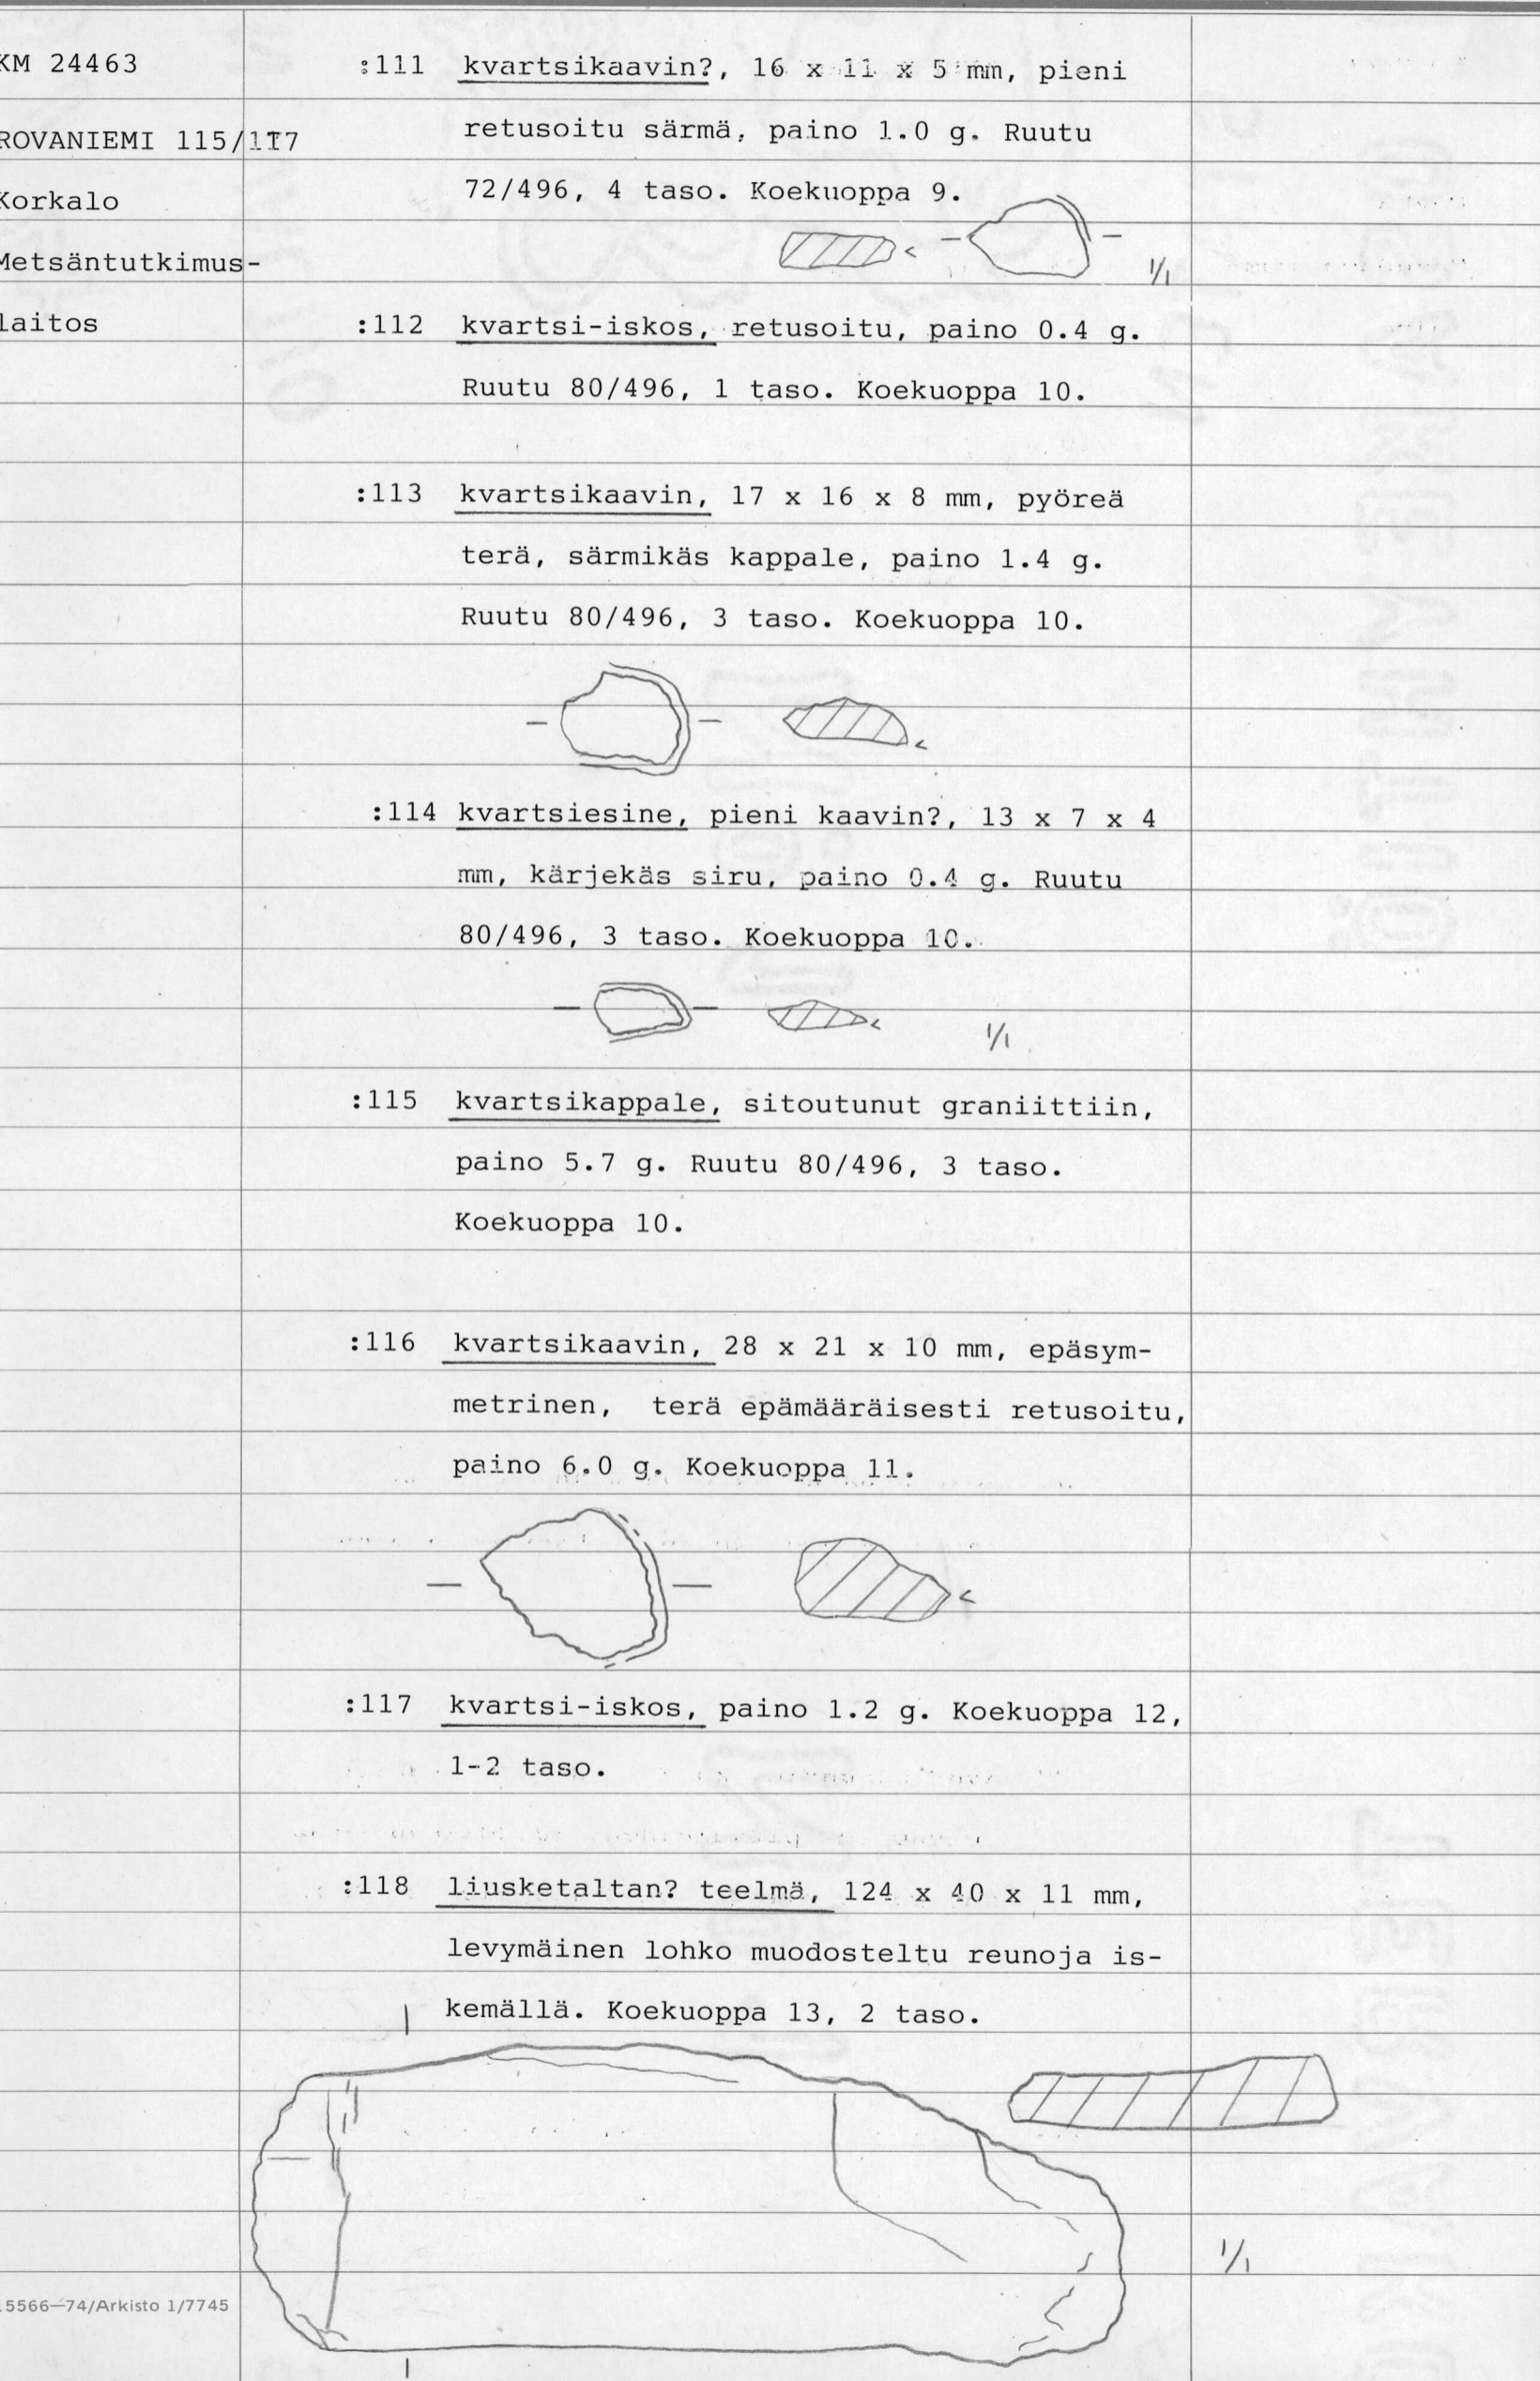 KM 24463
ROVANIEMI 115/117
Korkalo
Metsäntutkimus-
laitos
:111 kvartsikaavin?, 16 x 11 x 5 mm, pieni
retusoitu särmä, paino 1.0 g. Ruutu
72/496, 4 taso. Koekuoppa 9.
1/1
:112 kvartsi-iskos, retusoitu, paino 0.4 g.
Ruutu 80/496, 1 taso. Koekuoppa 10.
:113 kvartsikaavin, 17 x 16 x 8 mm, pyöreä
terä, särmikäs kappale, paino 1.4 g.
Ruutu 80/496, 3 taso. Koekuoppa 10.
:114 kvartsiesine, pieni kaavin?, 13 x 7 x 4
mm, kärjekäs siru, paino 0.4 g. Ruutu
80/496, 3 taso. Koekuoppa 10.
1/1
:115 kvartsikappale, sitoutunut graniittiin,
paino 5.7 g. Ruutu 80/496, 3 taso.
Koekuoppa 10.
:116 kvartsikaavin, 28 x 21 x 10 mm, epäsym-
metrinen, terä epämääräisesti retusoitu,
paino 6.0 g. Koekuoppa 11.
:117 kvartsi-iskos, paino 1.2 g. Koekuoppa 12,
1-2 taso.
:118 liusketaltan? teelmä, 124 x 40 x 11 mm,
levymäinen lohko muodosteltu reunoja is-
kemällä. Koekuoppa 13, 2 taso.
1/1
5566—74/Arkisto 1/7745